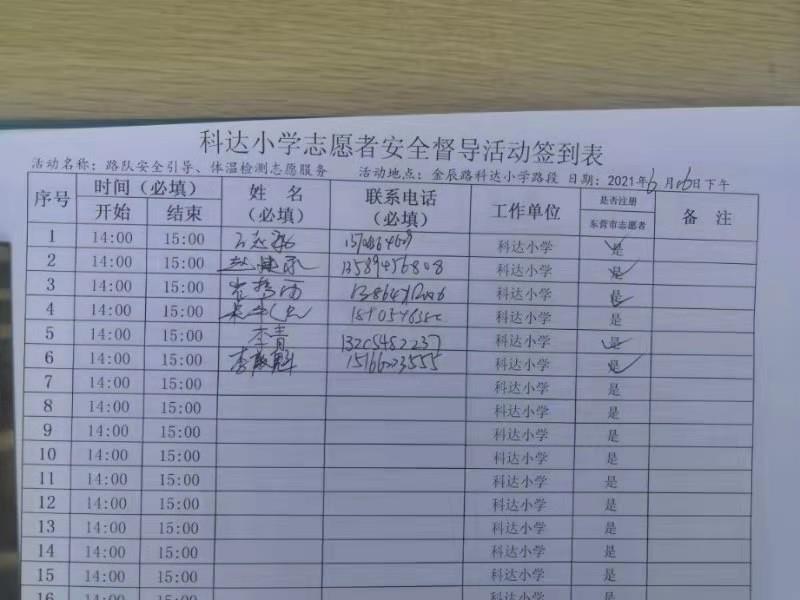 科达小学志愿者安全督导活动签到表
活动名称：路队安全引导、体温检测志愿服务 活动地点：金辰路科达小学路段 日期：2021年6月16日下午
序号 时间（必填） 姓名（必填） 联系电话（必填） 工作单位 是否注册东营市志愿者 备注
开始 结束
1 14:00 15:00 科达小学 是
2 14:00 15:00 13589456808 科达小学 是
3 14:00 15:00 科达小学 是
4 14:00 15:00 科达小学 是
5 14:00 15:00 李青 13205452237 科达小学 是
6 14:00 15:00 15166023555 科达小学 是
7 14:00 15:00 科达小学 是
8 14:00 15:00 科达小学 是
9 14:00 15:00 科达小学 是
10 14:00 15:00 科达小学 是
11 14:00 15:00 科达小学 是
12 14:00 15:00 科达小学 是
13 14:00 15:00 科达小学 是
14 14:00 15:00 科达小学 是
15 14:00 15:00 科达小学 是
16 14:00 15:00 科达小学 是